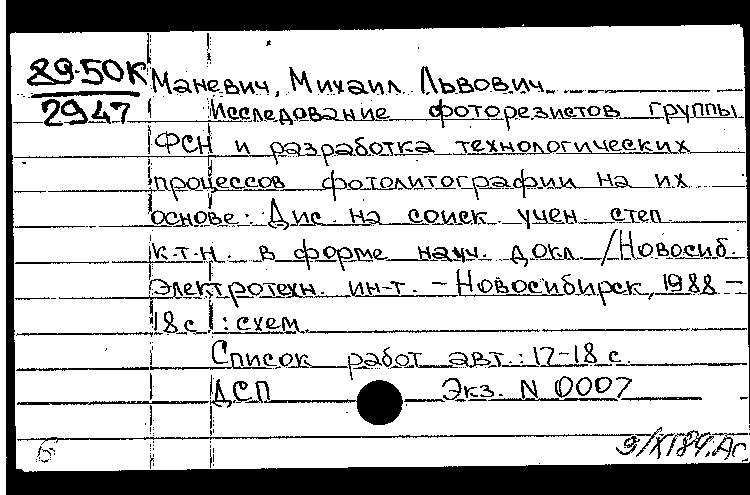 89-50К
2947
Маневич, Михаил Львович
Исследование фоторезистов группы
ФСН и разработка технологических
процессов фотолитографии на их
основе: Дис. на соиск. учен. степ.
к.т.н. в форме науч. докл. /Новосиб.
электротехн. ин-т. - Новосибирск, 1988 -
18 с : схем.
Список работ авт.: 17-18 с.
ДСП Экз. N 0007
б 9/XI89.